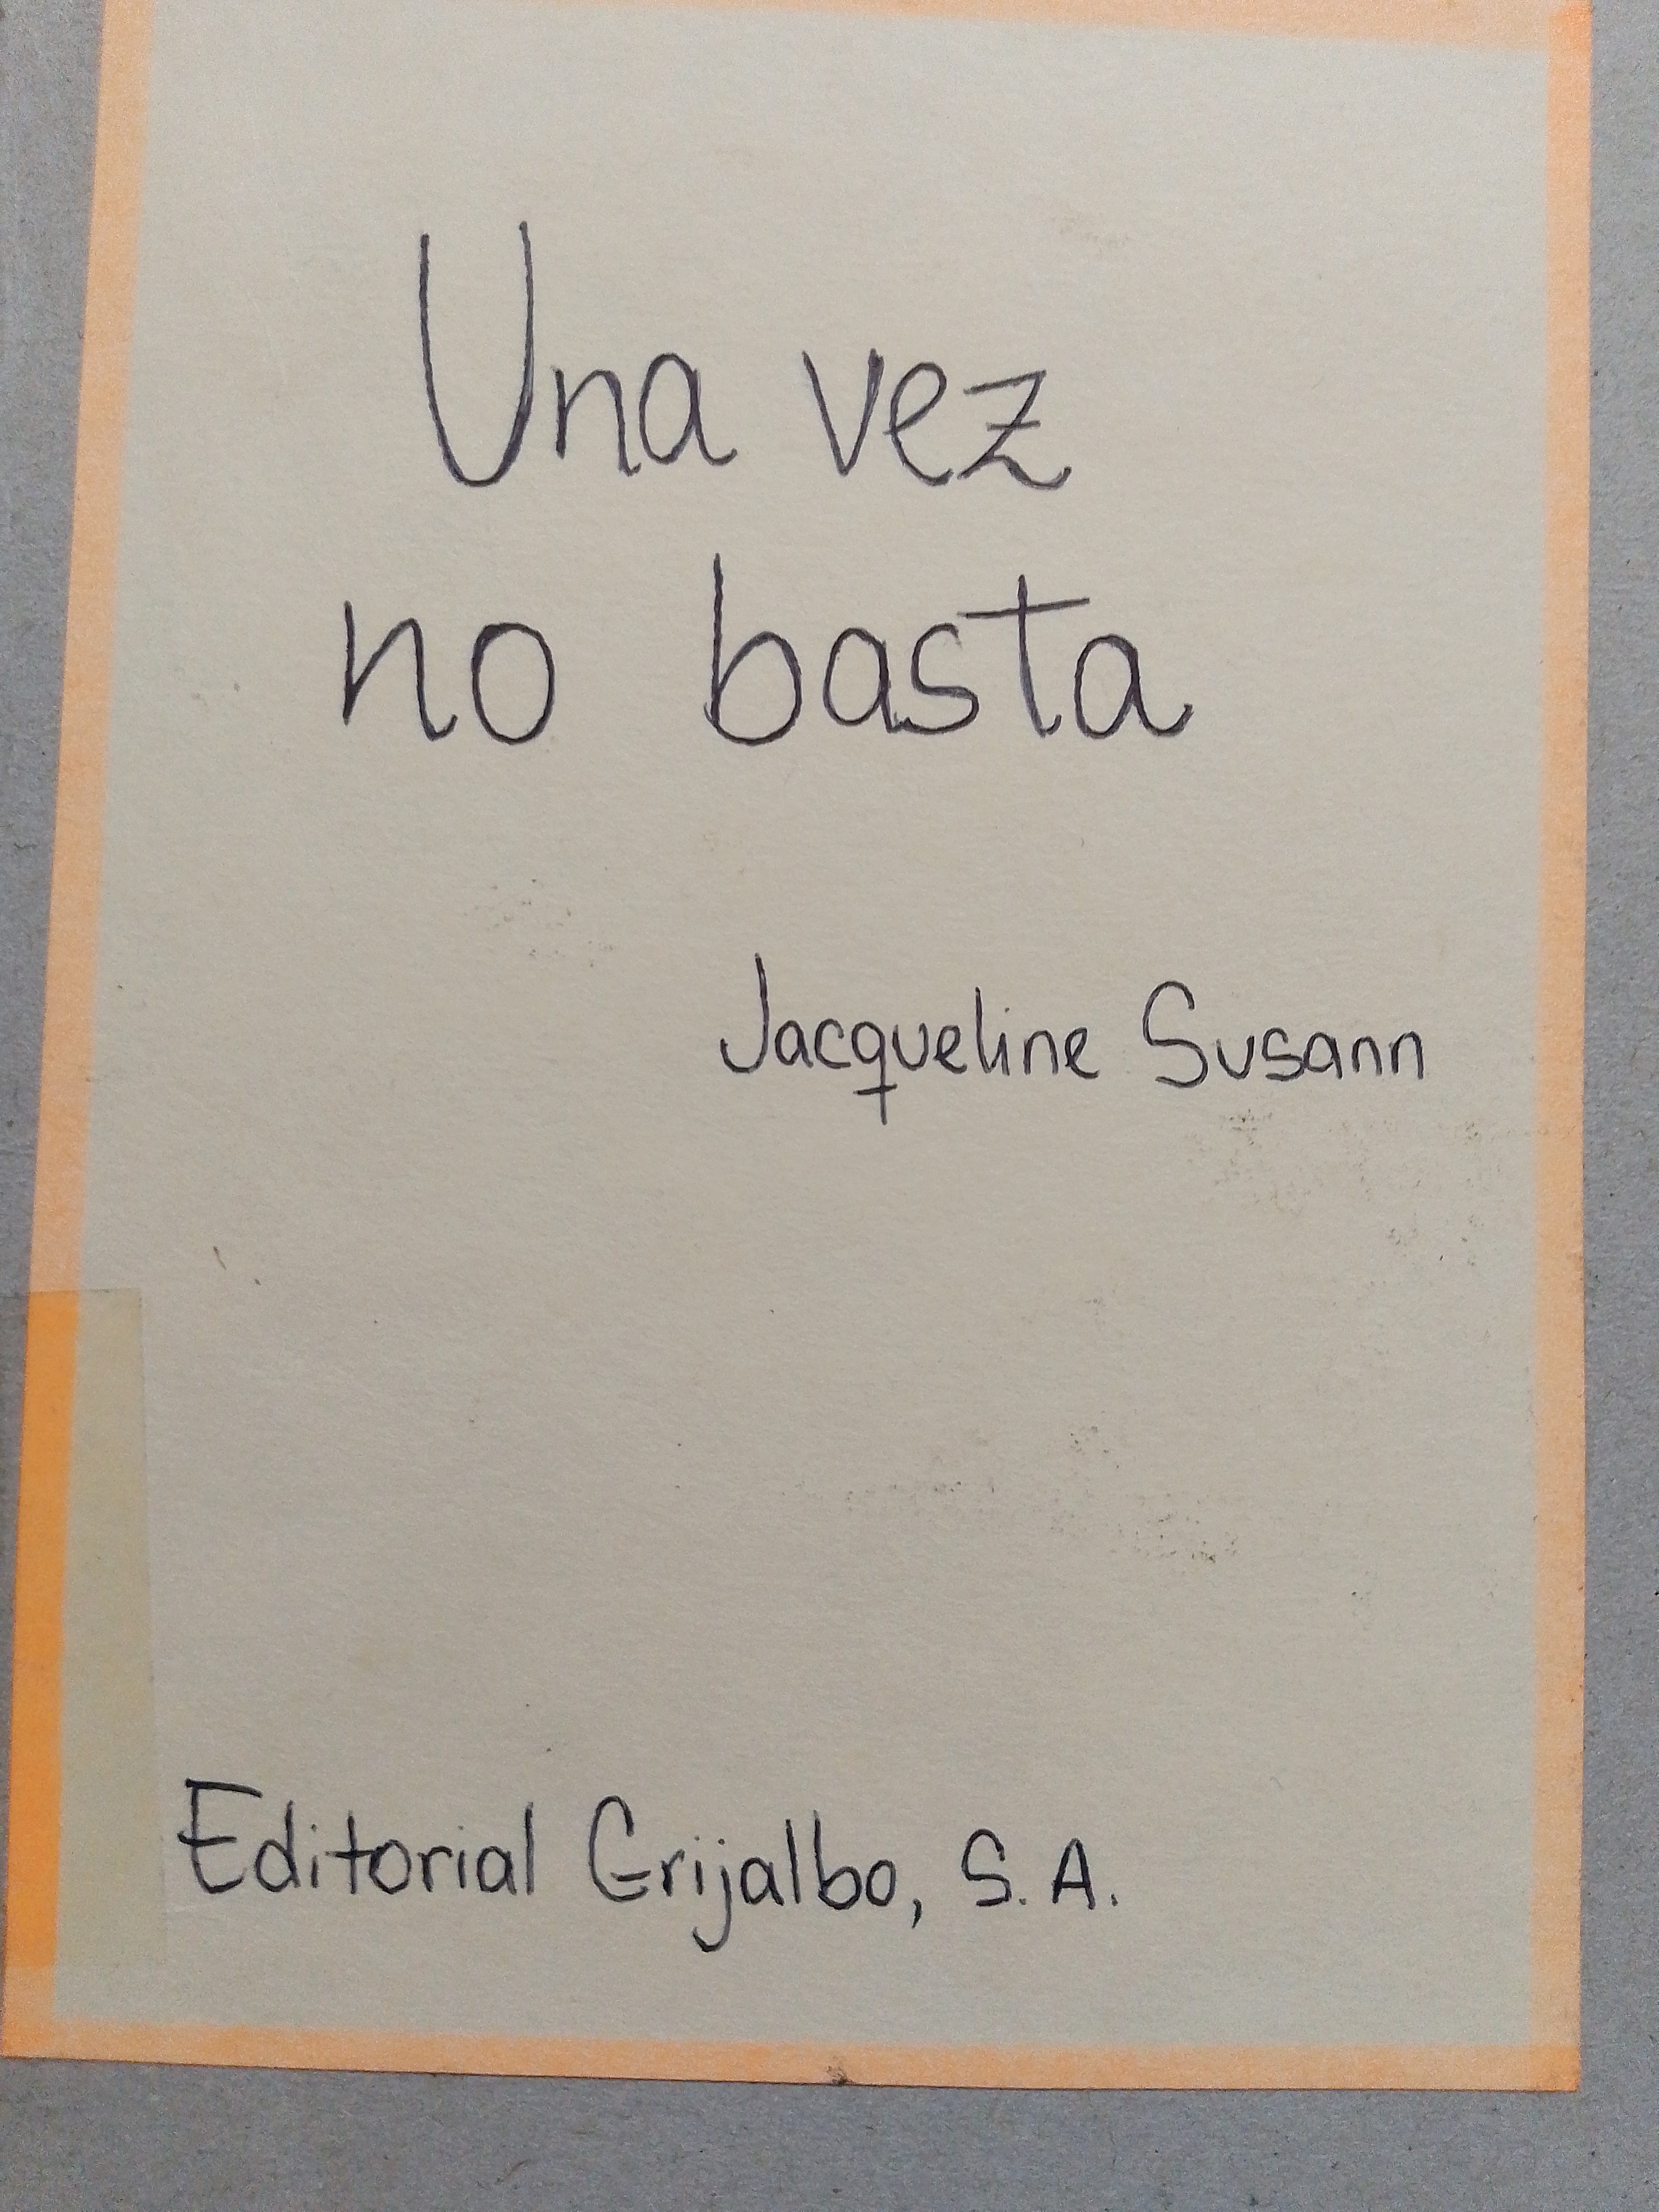 Una vez
no basta
Jacqueline Susann
Editorial Grijalbo, S.A.